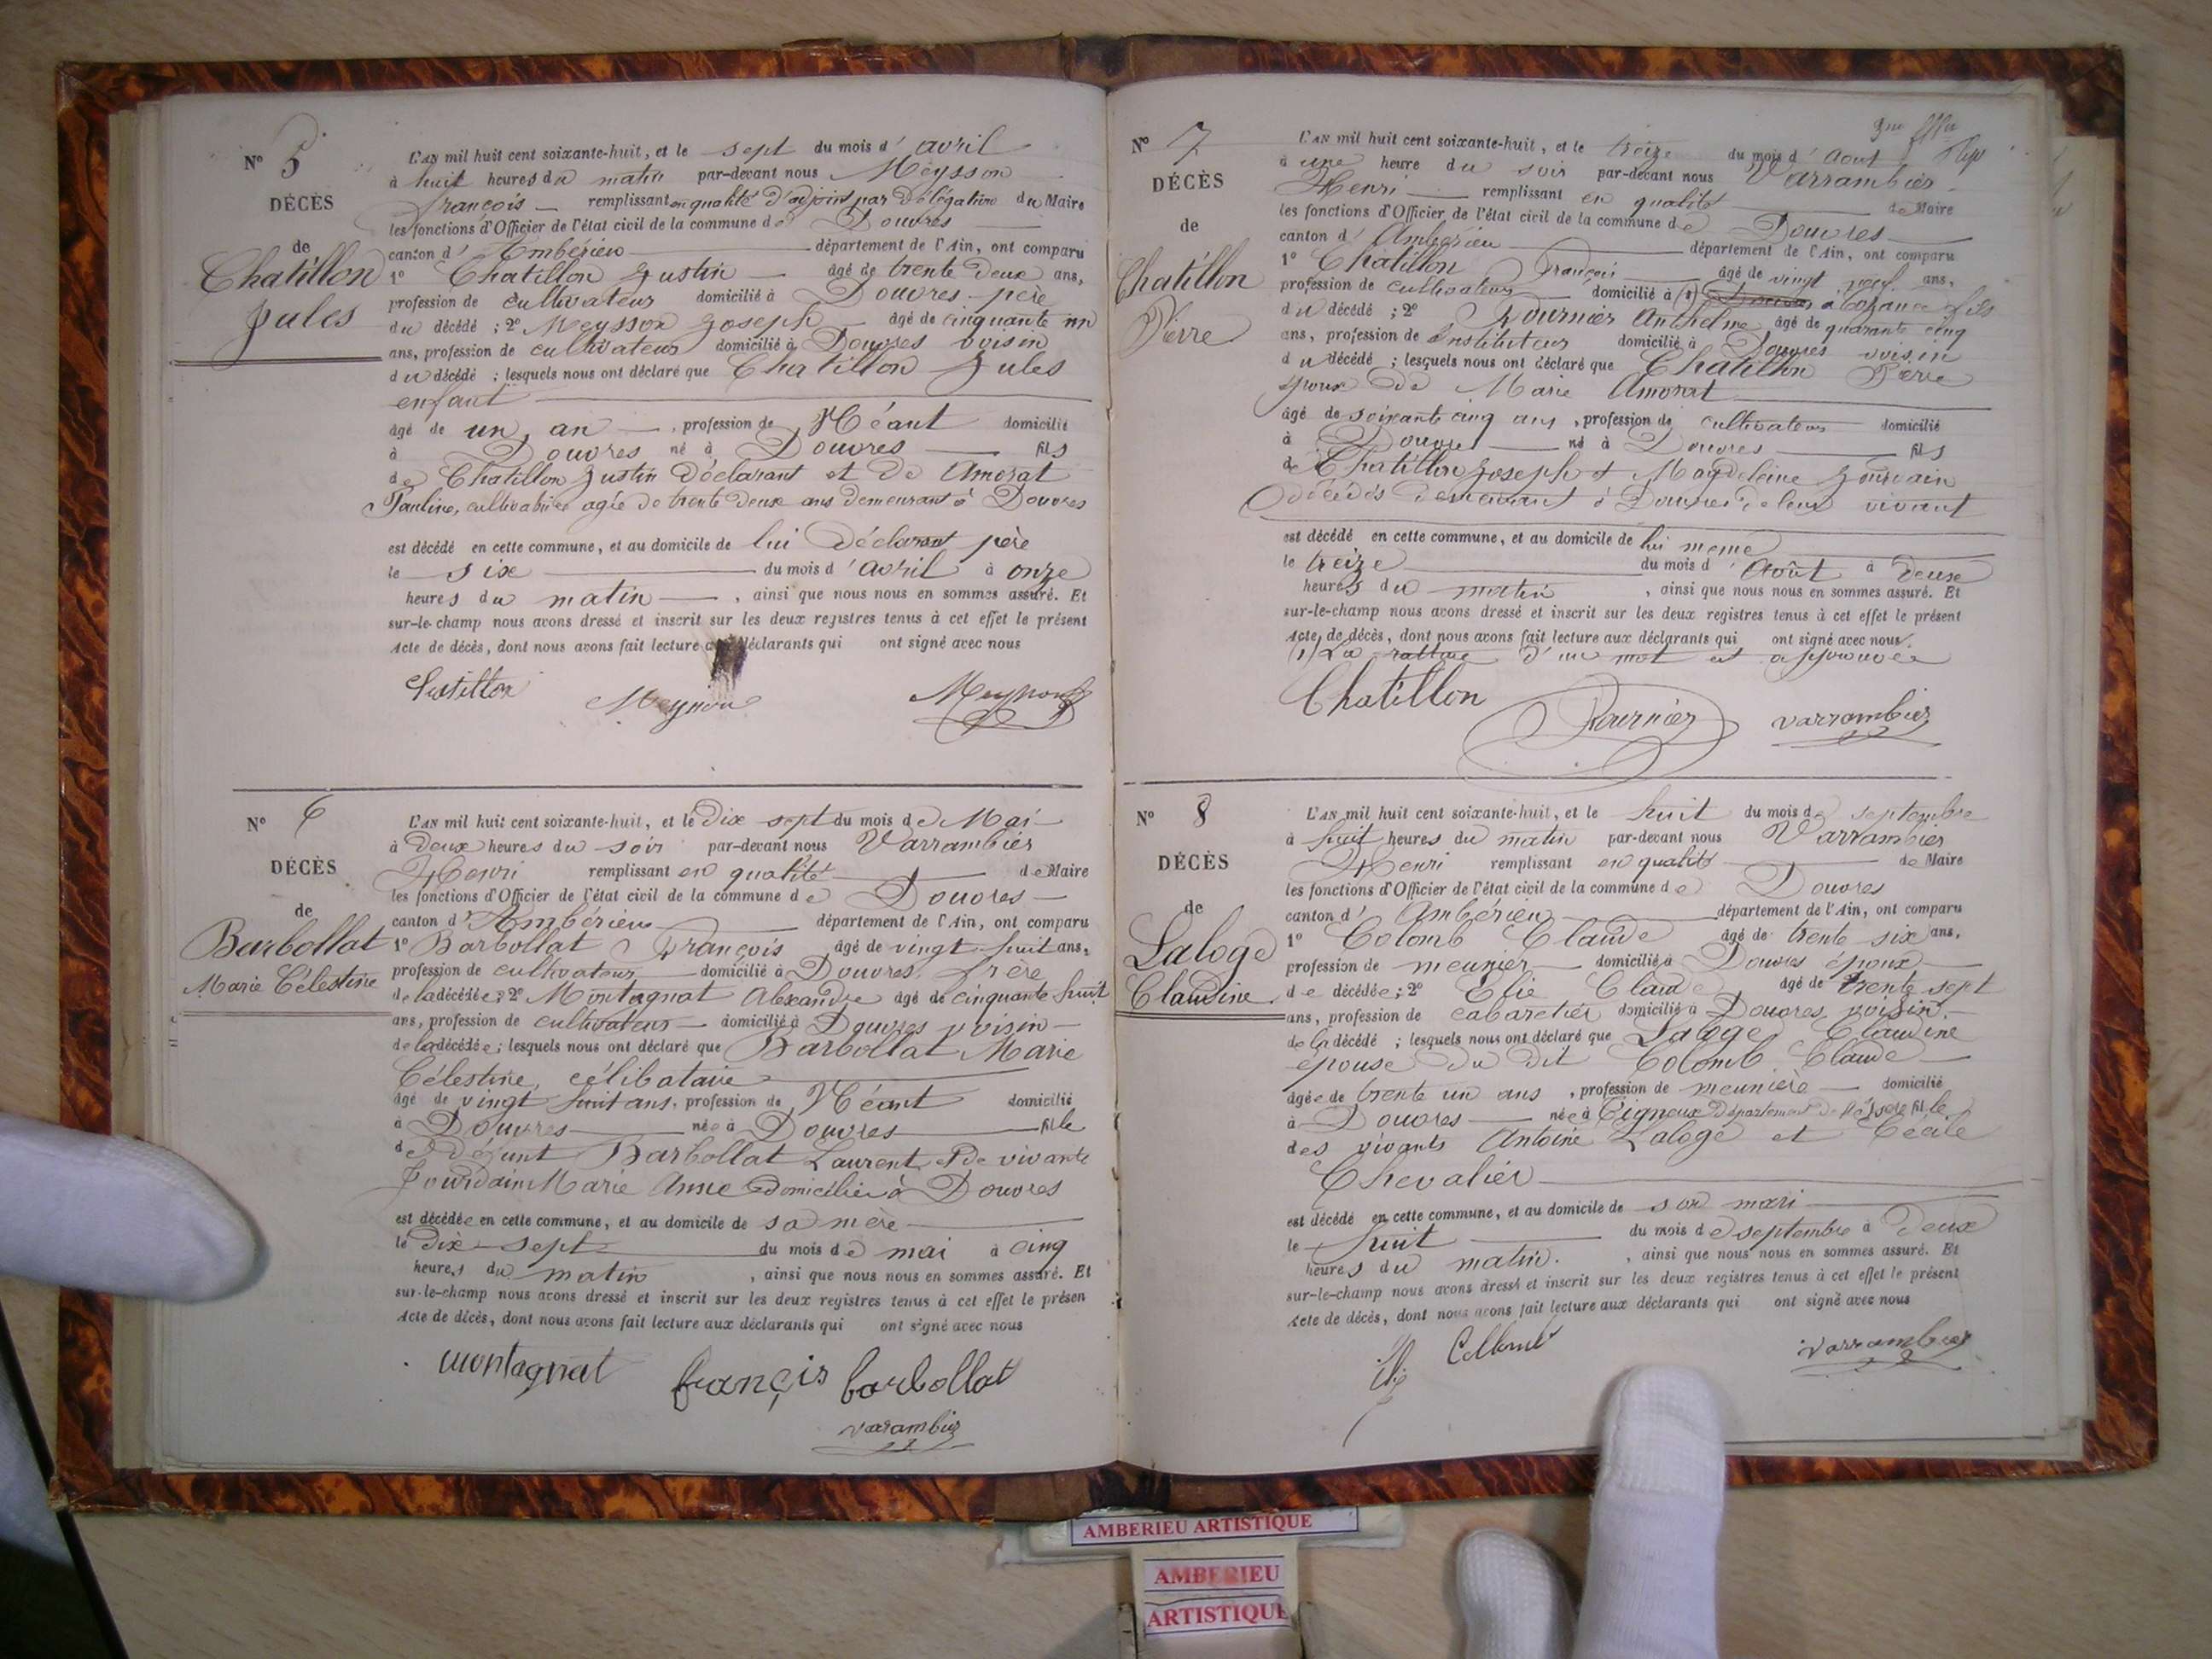 N° 5
DÉCÈS
de
Chatillon
Jules
L'AN mil huit cent soixante-huit, et le sept du mois d'avril
à huit heures du matin par-devant nous Meysson
françois remplissant en qualité d'adjoint par délégation du Maire
les fonctions d'Officier de l'état civil de la commune de Douvres
canton d'Ambérieu département de l'Ain, ont comparu
1° Chatillon Justin âgé de trente deux ans,
profession de cultivateur domicilié à Douvres père
du décédé ; 2° Meysson Joseph âgé de cinquante un
ans, profession de cultivateur domicilié à Douvres voisin
du décédé ; lesquels nous ont déclaré que Chatillon Jules
enfant
âgé de un an , profession de Néant domicilié
à Douvres né à Douvres fils
de Chatillon Justin déclarant et de Amorat
Pauline, cultivatrice agée de trente deux ans demeurant à Douvres
est décédé en cette commune, et au domicile de lui déclarant père
le six du mois d'avril à onze
heures du matin , ainsi que nous nous en sommes assuré. Et
sur-le-champ nous avons dressé et inscrit sur les deux registres tenus à cet effet le présent
Acte de décès, dont nous avons fait lecture aux déclarants qui ont signé avec nous
Chatillon Meysson Meysson
N° 6
DÉCÈS
de
Barbollat
Marie Célestine
L'AN mil huit cent soixante-huit, et le Dix sept du mois de Mai
à Deux heures du soir par-devant nous Varrambier
Henri remplissant en qualité de Maire
les fonctions d'Officier de l'état civil de la commune de Douvres
canton d'Ambérieu département de l'Ain, ont comparu
1° Barbollat François âgé de vingt huit ans,
profession de cultivateur domicilié à Douvres, frère
de la décédée ; 2° Montagnat Alexandre âgé de cinquante huit
ans, profession de cultivateur domicilié à Douvres voisin
de la décédée ; lesquels nous ont déclaré que Barbollat Marie
Célestine, célibataire
âgé de vingt huit ans, profession de Néant domicilié
à Douvres née à Douvres fille
de défunt Barbollat Laurent et de vivante
Jourdain Marie Anne domiciliée à Douvres
est décédée en cette commune, et au domicile de sa mère
le Dix-sept du mois de mai à cinq
heures du matin , ainsi que nous nous en sommes assuré. Et
sur-le-champ nous avons dressé et inscrit sur les deux registres tenus à cet effet le présen
Acte de décès, dont nous avons fait lecture aux déclarants qui ont signé avec nous
montagnat françois barbollat
varrambier
N° 7
DÉCÈS
de
Chatillon
Pierre
L'AN mil huit cent soixante-huit, et le treize du mois d'Aout
à une heure du soir par-devant nous Varrambier
Henri remplissant en qualité de Maire
les fonctions d'Officier de l'état civil de la commune de Douvres
canton d'Ambérieu département de l'Ain, ont comparu
1° Chatillon François âgé de vingt neuf ans,
profession de cultivateur domicilié à (1) Douvres à fils
du décédé ; 2° Fournier Anthelme âgé de quarante cinq
ans, profession de Instituteur domicilié à Douvres voisin
du décédé ; lesquels nous ont déclaré que Chatillon Pierre
époux de Marie Amorat
âgé de soixante cinq ans, profession de cultivateur domicilié
à Douvres né à Douvres fils
de Chatillon Joseph et Magdeleine Jourdain
décédés demeurant à Douvres de leur vivant
est décédé en cette commune, et au domicile de lui meme
le treize du mois d'Août à deux
heures du matin , ainsi que nous nous en sommes assuré. Et
sur-le-champ nous avons dressé et inscrit sur les deux registres tenus à cet effet le présent
Acte de décès, dont nous avons fait lecture aux déclarants qui ont signé avec nous.
(1) La rature d'un mot est approuvée
Chatillon Fournier varrambier
N° 8
DÉCÈS
de
Laloge
Claudine
L'AN mil huit cent soixante-huit, et le huit du mois de septembre
à huit heures du matin par-devant nous Varrambier
Henri remplissant en qualité de Maire
les fonctions d'Officier de l'état civil de la commune de Douvres
canton d'Ambérieu département de l'Ain, ont comparu
1° Colomb Claude âgé de trente six ans,
profession de meunier domicilié à Douvres époux
de décédée ; 2° Elie Claude âgé de trente sept
ans, profession de cabaretier domicilié à Douvres voisin
de la décédé ; lesquels nous ont déclaré que Laloge Claudine
épouse du dit Colomb Claude
âgée de trente un ans , profession de meunière domicilié
à Douvres née à département de l'Isère fille
des vivants Antoine Laloge et Cécile
Chevalier
est décédé en cette commune, et au domicile de son mari
le huit du mois de septembre à Deux
heures du matin. , ainsi que nous nous en sommes assuré. Et
sur-le-champ nous avons dressé et inscrit sur les deux registres tenus à cet effet le présent
Acte de décès, dont nous avons fait lecture aux déclarants qui ont signé avec nous
Elie Collomb varrambier
AMBERIEU ARTISTIQUE
AMBERIEU
ARTISTIQUE